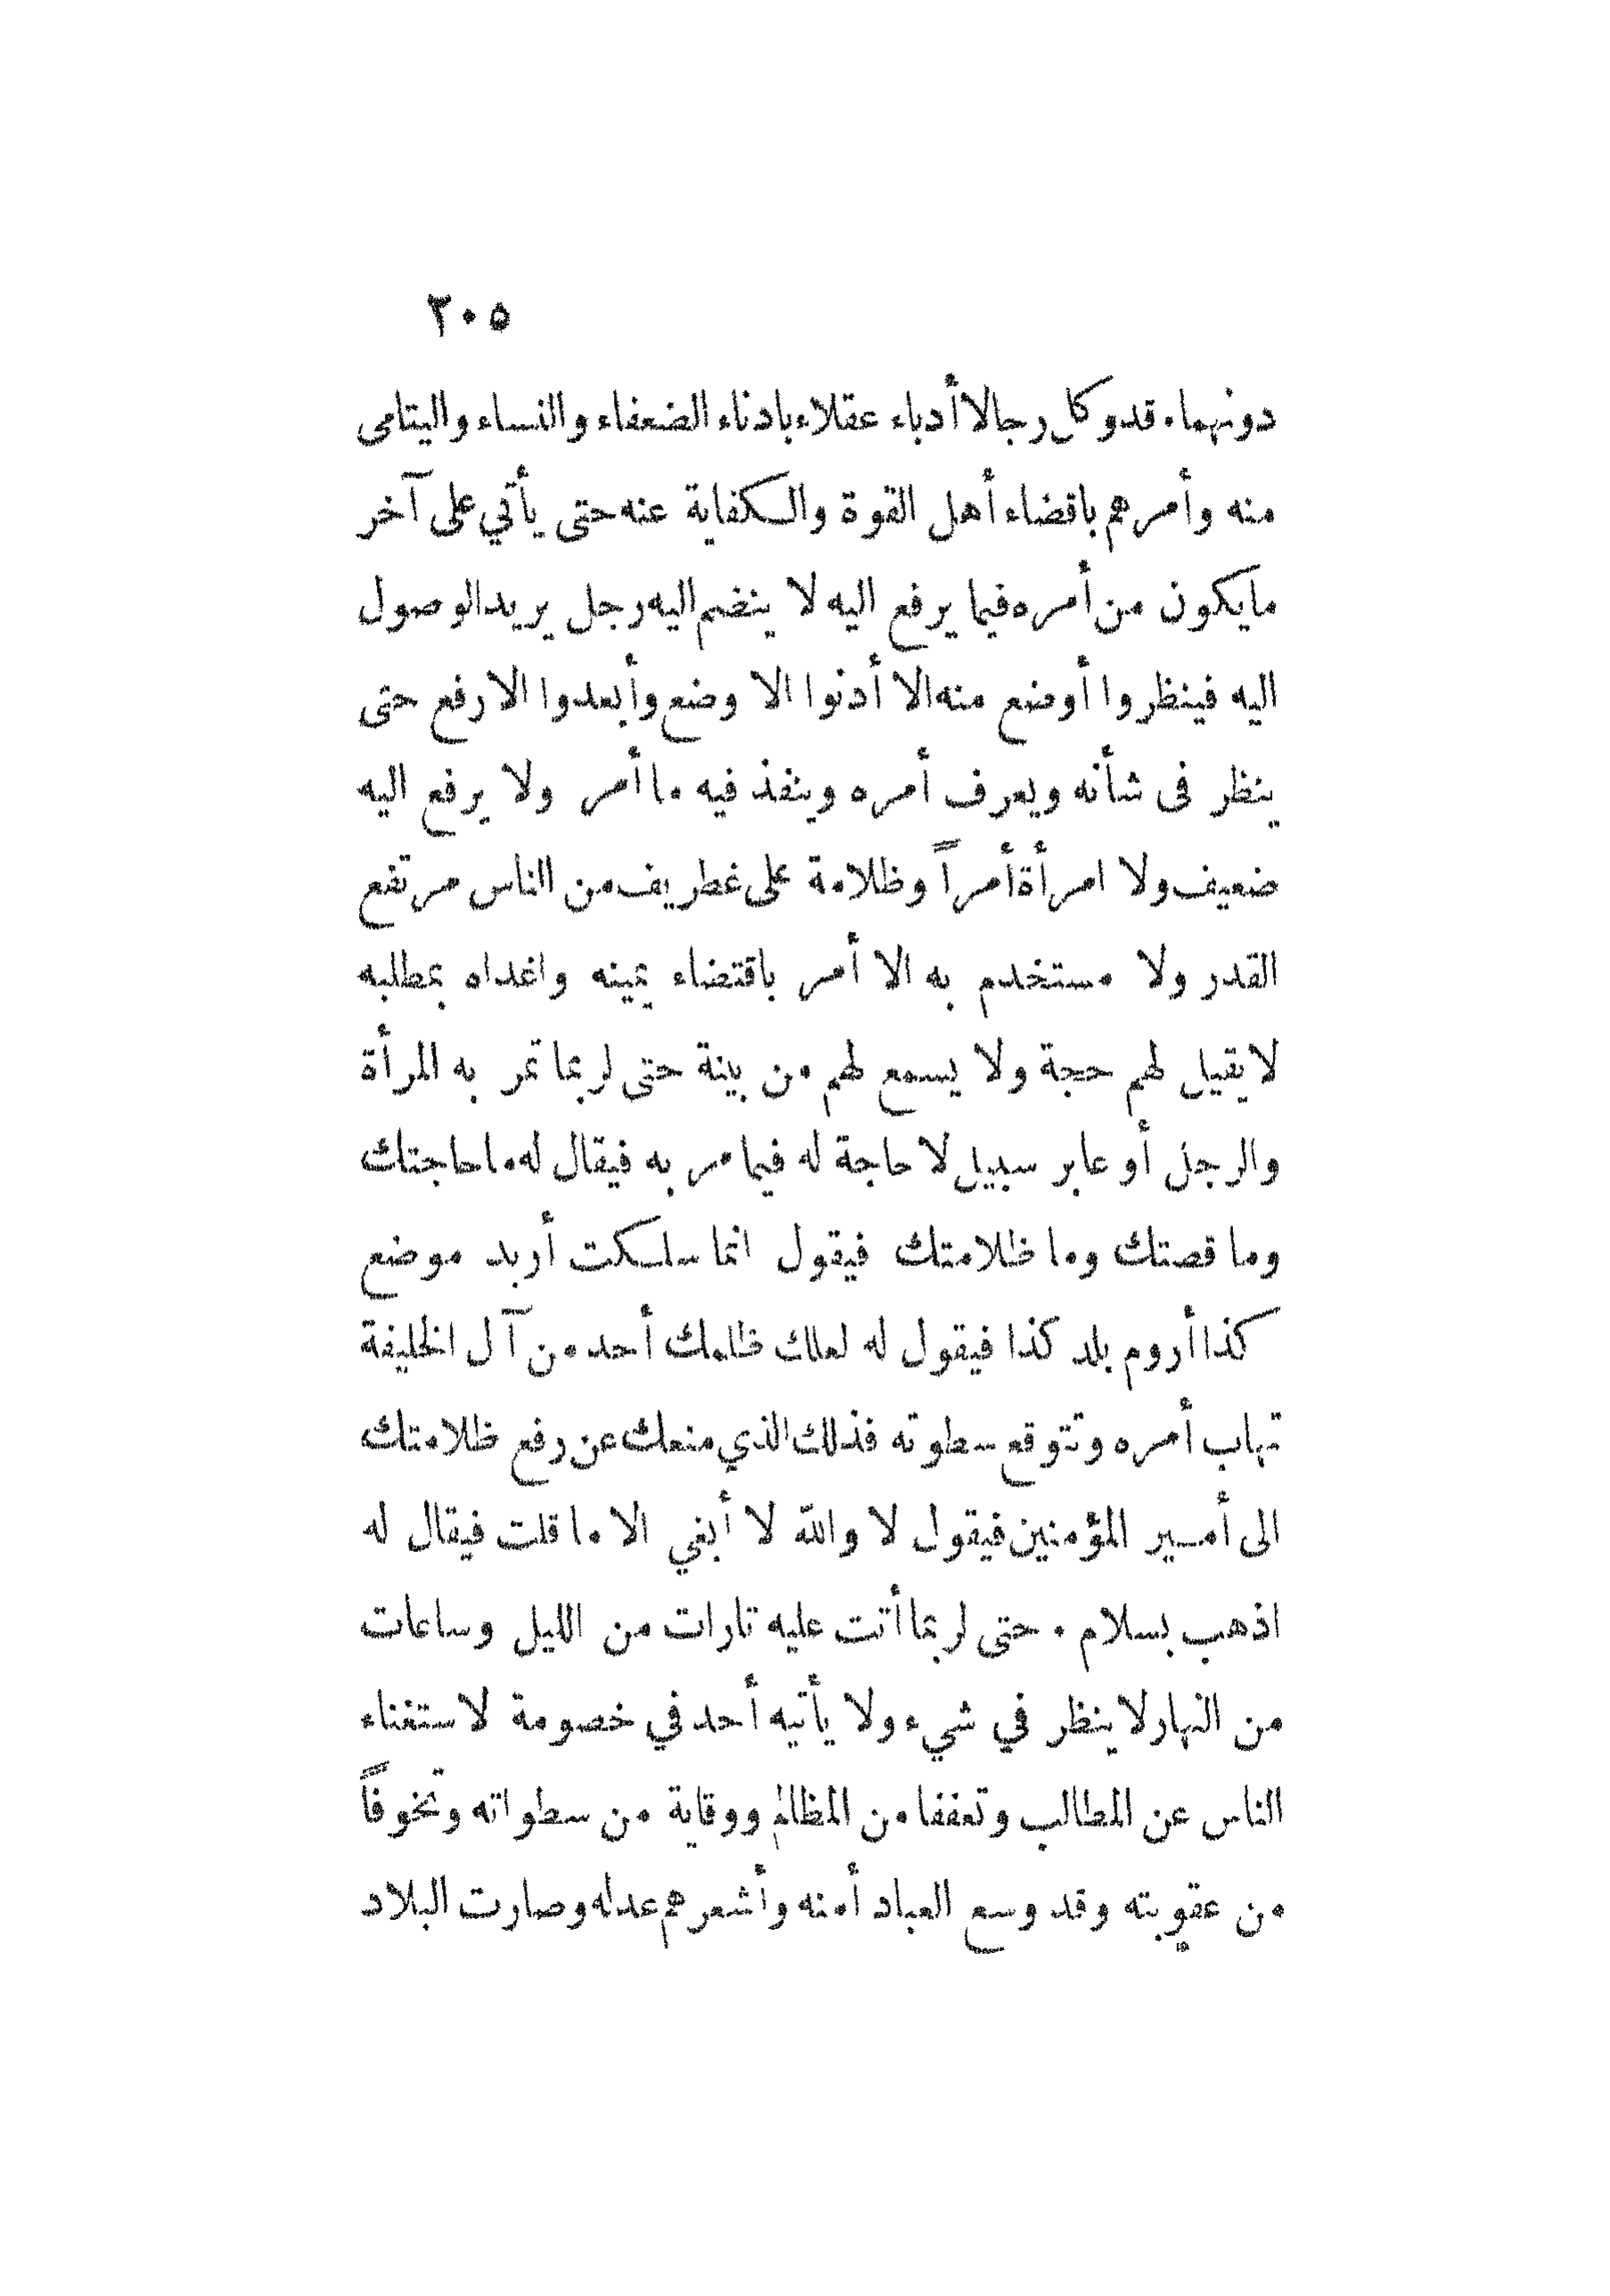 ٢٠٥
دونهما. قد وكل رجالا أدباء عقلاء بادناء الضعفاء والنساء واليتامى
منه وأمرهم باقضاء أهل القوة والكفاية عنه حتى يأتي على آخر
ما يكون من أمره فيما يرفع اليه لا ينضم اليه رجل يريد الوصول
اليه فينظروا أوضع منه الا أدنوا الا وضع وأبعدوا الارفع حتى
ينظر فى شأنه ويعرف أمره وينفذ فيه ما أمر ولا يرفع اليه
ضعيف ولا امرأة أمراً وظلامة على غطريف من الناس مرتفع
القدر ولا مستخدم به الا أمر باقتضاء يمينه واغداه بمطلبه
لا يقيل لهم حجة ولا يسمع لهم من بينة حتى لربما تمر به المرأة
والرجل أو عابر سبيل لا حاجة له فيما مر به فيقال له ما حاجتك
وما قصتك وما ظلامتك فيقول انما سلكت أريد موضع
كذا أروم بلد كذا فيقول له لعلك ظلمك أحد من آل الخليفة
تهاب أمره وتتوقع سطوته فذلك الذي منعك عن رفع ظلامتك
الى أمير المؤمنين فيقول لا والله لا أبغي الا ما قلت فيقال له
اذهب بسلام . حتى لربما أتت عليه تارات من الليل وساعات
من النهار لا ينظر في شيء ولا يأتيه أحد في خصومة لاستغناء
الناس عن المطالب وتعففا من المظالم ووقاية من سطواته وتخوفاً
من عقوبته وقد وسع العباد أمنه وأشعرهم عدله وصارت البلاد